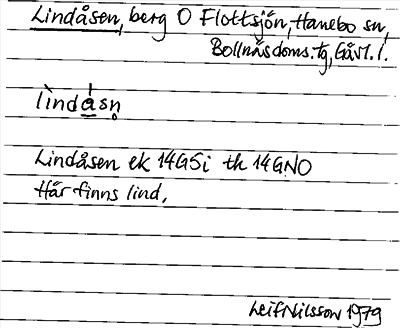 Lindåsen, berg O Flottsjön, Hanebo sn,
Bollnäs doms. tg, Gävl. l.
lìndå̀sn̥
Lindåsen ek 14G5i th 14GNO
Här finns lind.
Leif Nilsson 1979